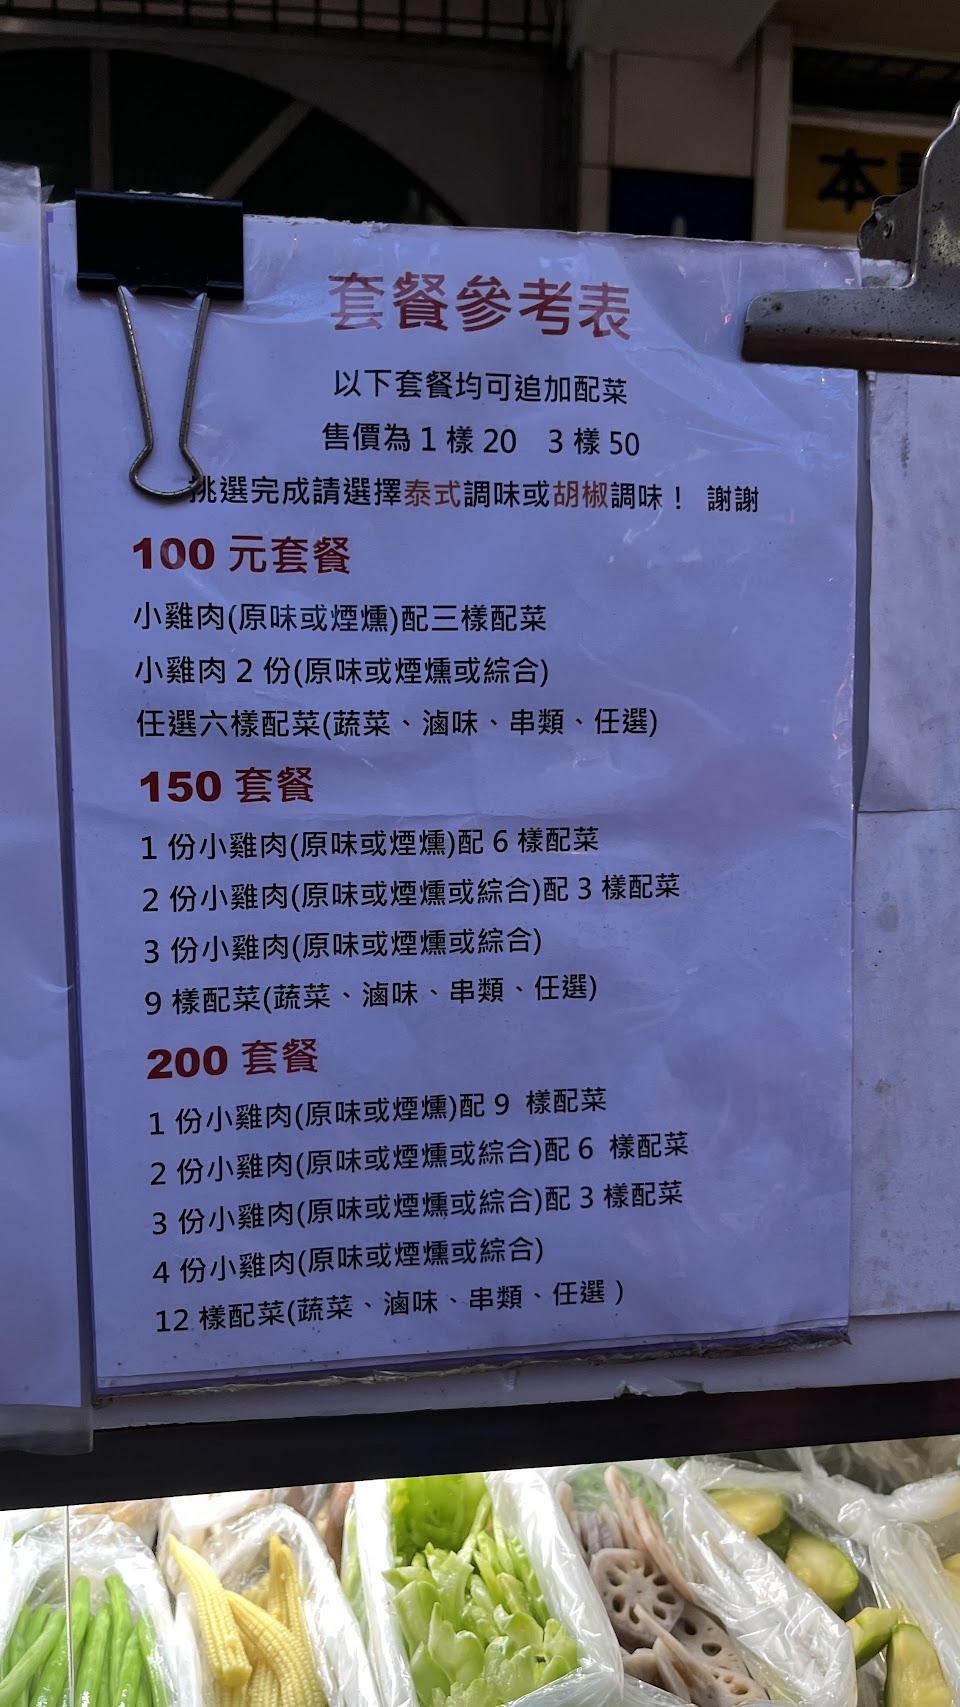 本
套餐參考表
以下套餐均可追加配菜
售價為1樣20 3樣50
挑選完成請選擇泰式調味或胡椒調味！ 謝謝
100 元套餐
小雞肉(原味或煙燻)配三樣配菜
小雞肉 2 份(原味或煙燻或綜合)
任選六樣配菜(蔬菜、滷味、串類、任選)
150 套餐
1 份小雞肉(原味或煙燻)配 6 樣配菜
2 份小雞肉(原味或煙燻或綜合)配 3 樣配菜
3 份小雞肉(原味或煙燻或綜合)
9 樣配菜(蔬菜、滷味、串類、任選)
200 套餐
1 份小雞肉(原味或煙燻)配 9 樣配菜
2 份小雞肉(原味或煙燻或綜合)配 6 樣配菜
3 份小雞肉(原味或煙燻或綜合)配 3 樣配菜
4 份小雞肉(原味或煙燻或綜合)
12 樣配菜(蔬菜、滷味、串類、任選 )